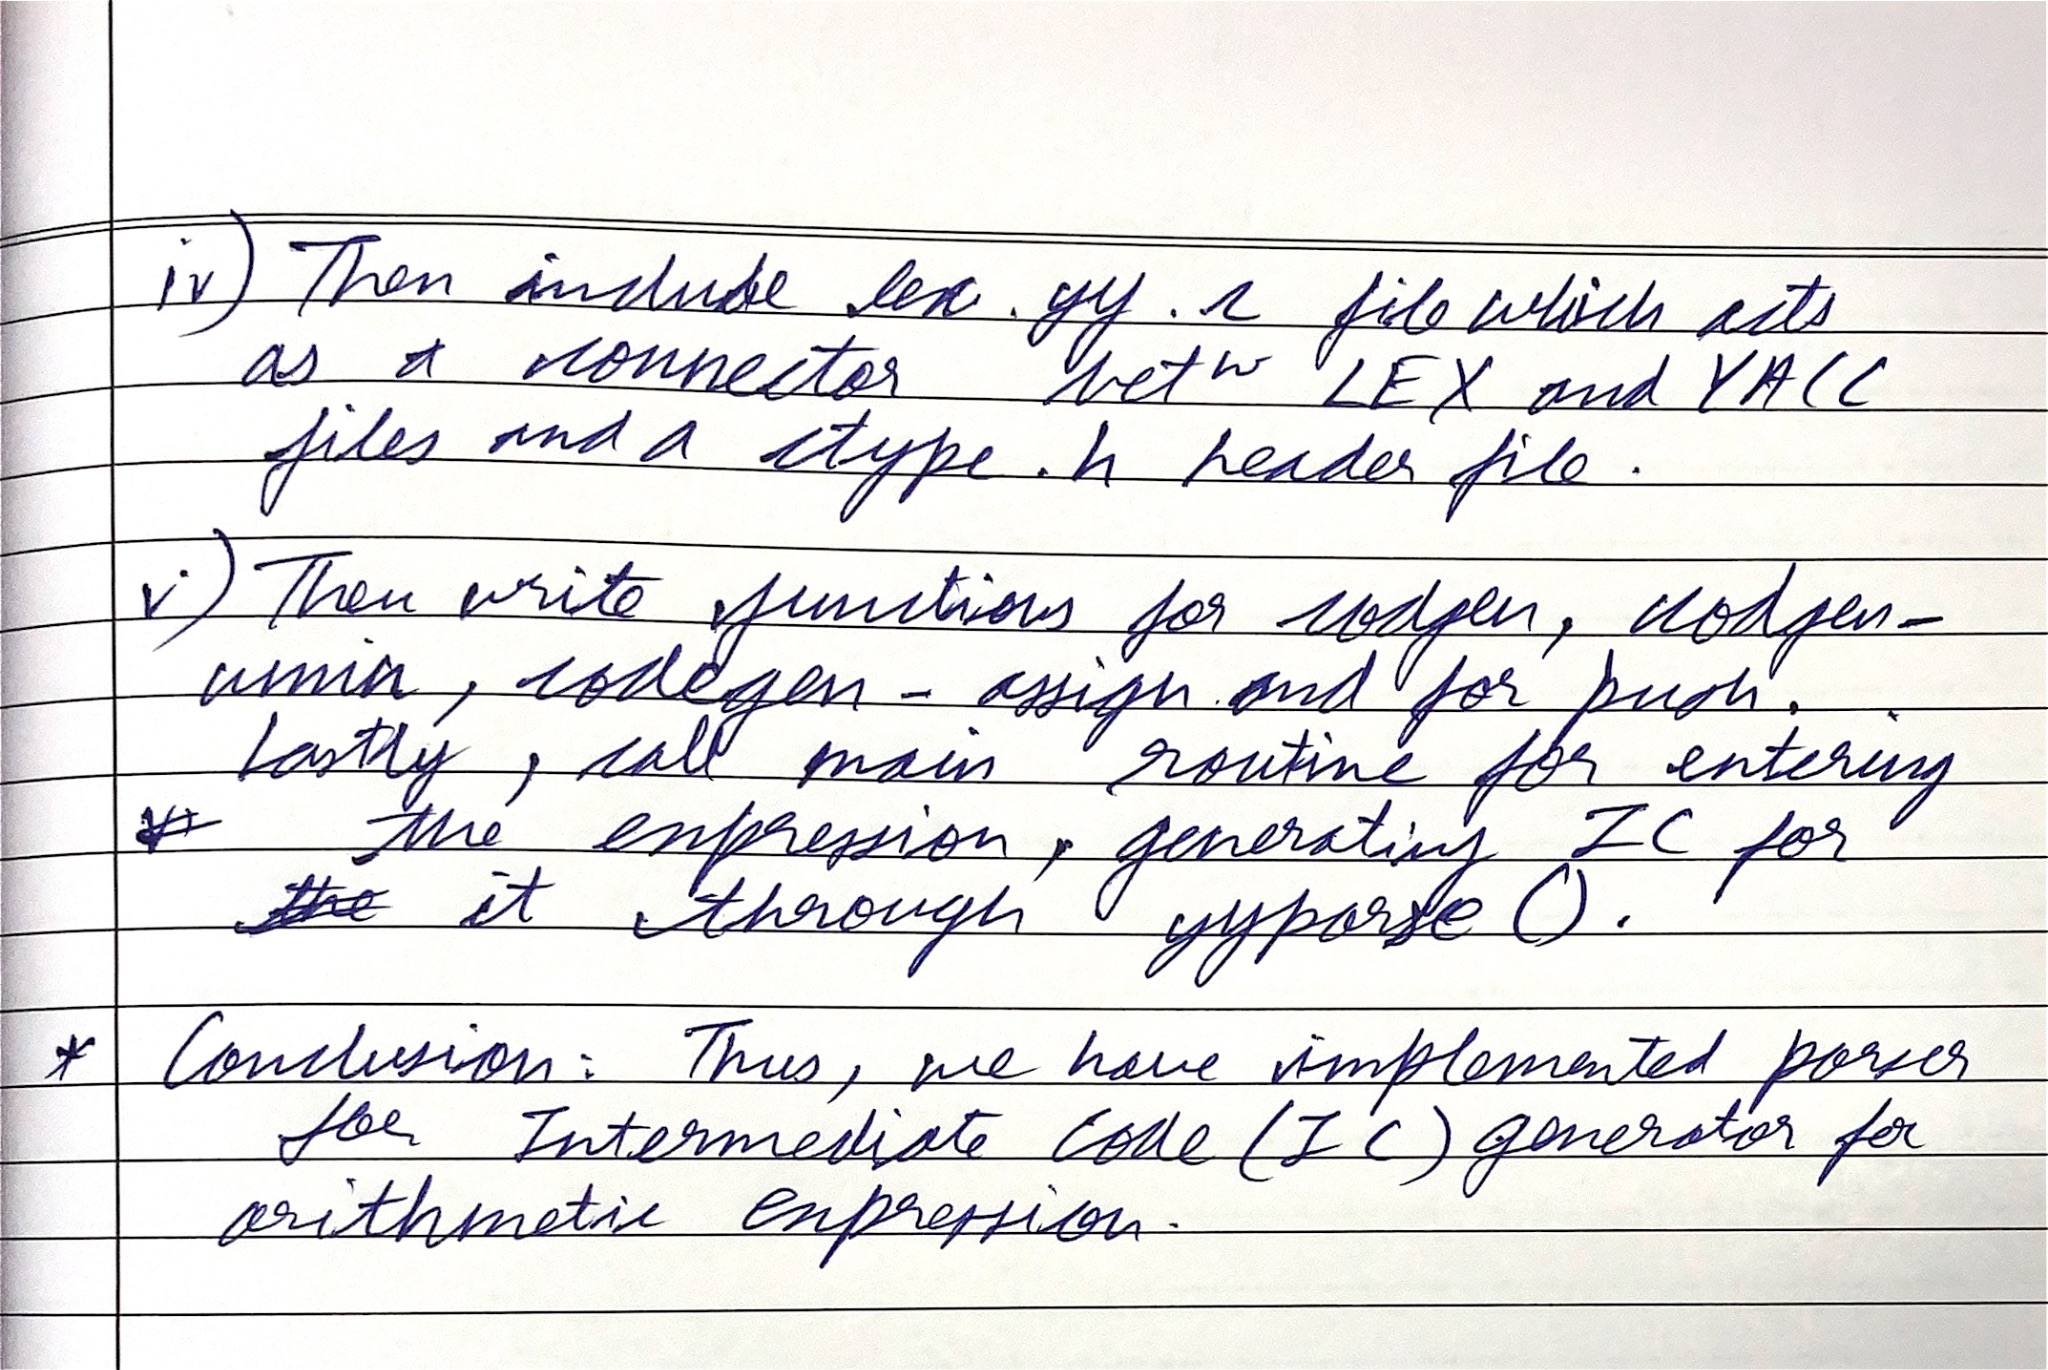 iv) Then include lex.yy.c file which acts
as a connector betw LEX and YACC
files and a ctype.h header file.
v) Then write functions for codgen, codgen-
umin, codegen-assign and for push.
Lastly, call main routine for entering
the expression, generating IC for
it through yyparse().
* Conclusion: Thus, we have implemented parser
for Intermediate Code (IC) generator for
arithmetic expression.